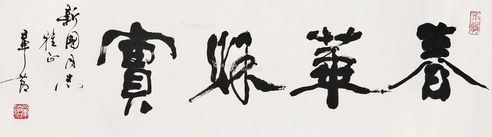 春華秌實
新國同志
雅正